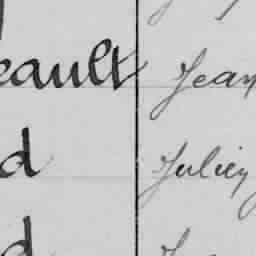 eault Jean
d Julien
d